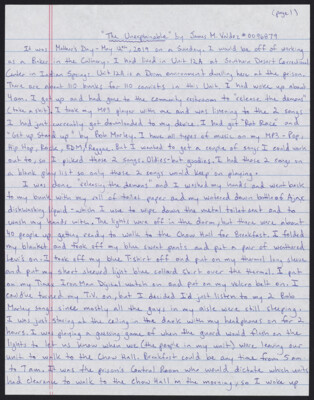 (page 1)
"The Unexplainable" by James M. Valdez #0096579
It was Mother's Day - May 12th, 2019 on a Sunday. I would be off of working
as a Baker in the Culinary. I had lived in Unit 12A at Southern Desert Correctional
Center in Indian Springs. Unit 12A is a Dorm environment dwelling here at the prison.
There are about 110 bunks for 110 convicts in this Unit. I had woke up about
4am. I got up and had gone to the community restroom to "release the demons"
(take a shit). I took my MP3 player with me and was listening to the 2 songs
I had just recently got downloaded to my device. I had got "Rat Race" and
"Get up Stand up" by Bob Marley. I have all types of music on my MP3 - Pop,
Hip Hop, Rock, RDM/Reggae. But I wanted to get a couple of songs I could work
out to, so I picked these 2 songs. Oldies - but goodies. I had those 2 songs on
a blank playlist so only those 2 songs would keep on playing.
I was done "releasing the demons" and I washed my hands and went back
to my bunk with my roll of toilet paper and my watered down bottle of Ajax
dishwashing liquid - which I use to wipe down the metal toilet seat and to
wash my hands with. The lights were off in the dorm, but there were about
40 people up getting ready to walk to the Chow Hall for Breakfast. I folded
my blanket and took off my blue sweat pants and put a pair of weathered
Levi's on. I took off my blue T-Shirt off and put on my thermal long sleeve
and put my short sleeved light blue collared shirt over the thermal. I put
on my Timex Iron Man Digital watch on and put on my velcro belt on. I
could've turned my T.V. on, but I decided I'd just listen to my 2 Bob
Marley songs since mostly all the guys in my aisle were still sleeping.
I was just staring at the ceiling in the dark with my headphones on for 2
hours. I was playing a guessing game of when the guard would flash on the
lights to let us know when we (the people in my unit) were leaving our
unit to walk to the Chow Hall. Breakfast could be any time from 5am
to 7am. It was the prison's Control Room who would dictate which units
had clearance to walk to the Chow Hall in the morning - so I woke up